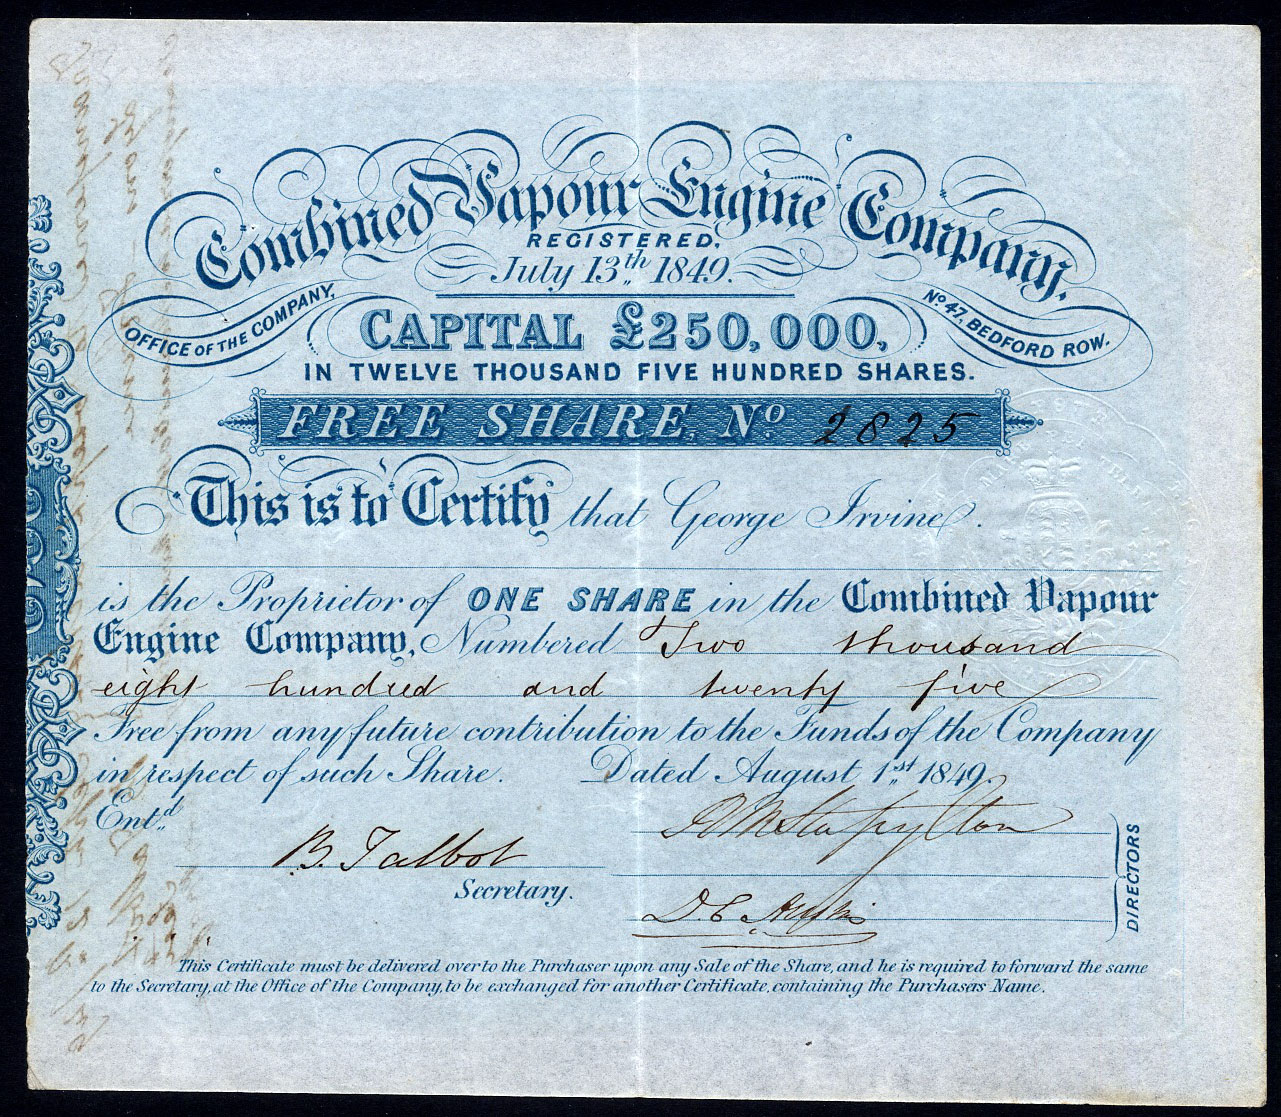 Combined Vapour Engine Company.
REGISTERED,
July 13th,, 1849.
OFFICE OF THE COMPANY,
No. 47, BEDFORD ROW.
CAPITAL £250,000,
IN TWELVE THOUSAND FIVE HUNDRED SHARES.
FREE SHARE, No 2825
This is to Certify that George Irvine.
is the Proprietor of ONE SHARE in the Combined Vapour
Engine Company, Numbered Two thousand
eight hundred and twenty five
Free from any future contribution to the Funds of the Company
in respect of such Share. Dated August 1st 1849.
Ent,,d
Stapylton
B. Talbot
Secretary.
D. C.
DIRECTORS
This Certificate must be delivered over to the Purchaser upon any Sale of the Share, and he is required to forward the same
to the Secretary, at the Office of the Company, to be exchanged for another Certificate, containing the Purchasers Name.